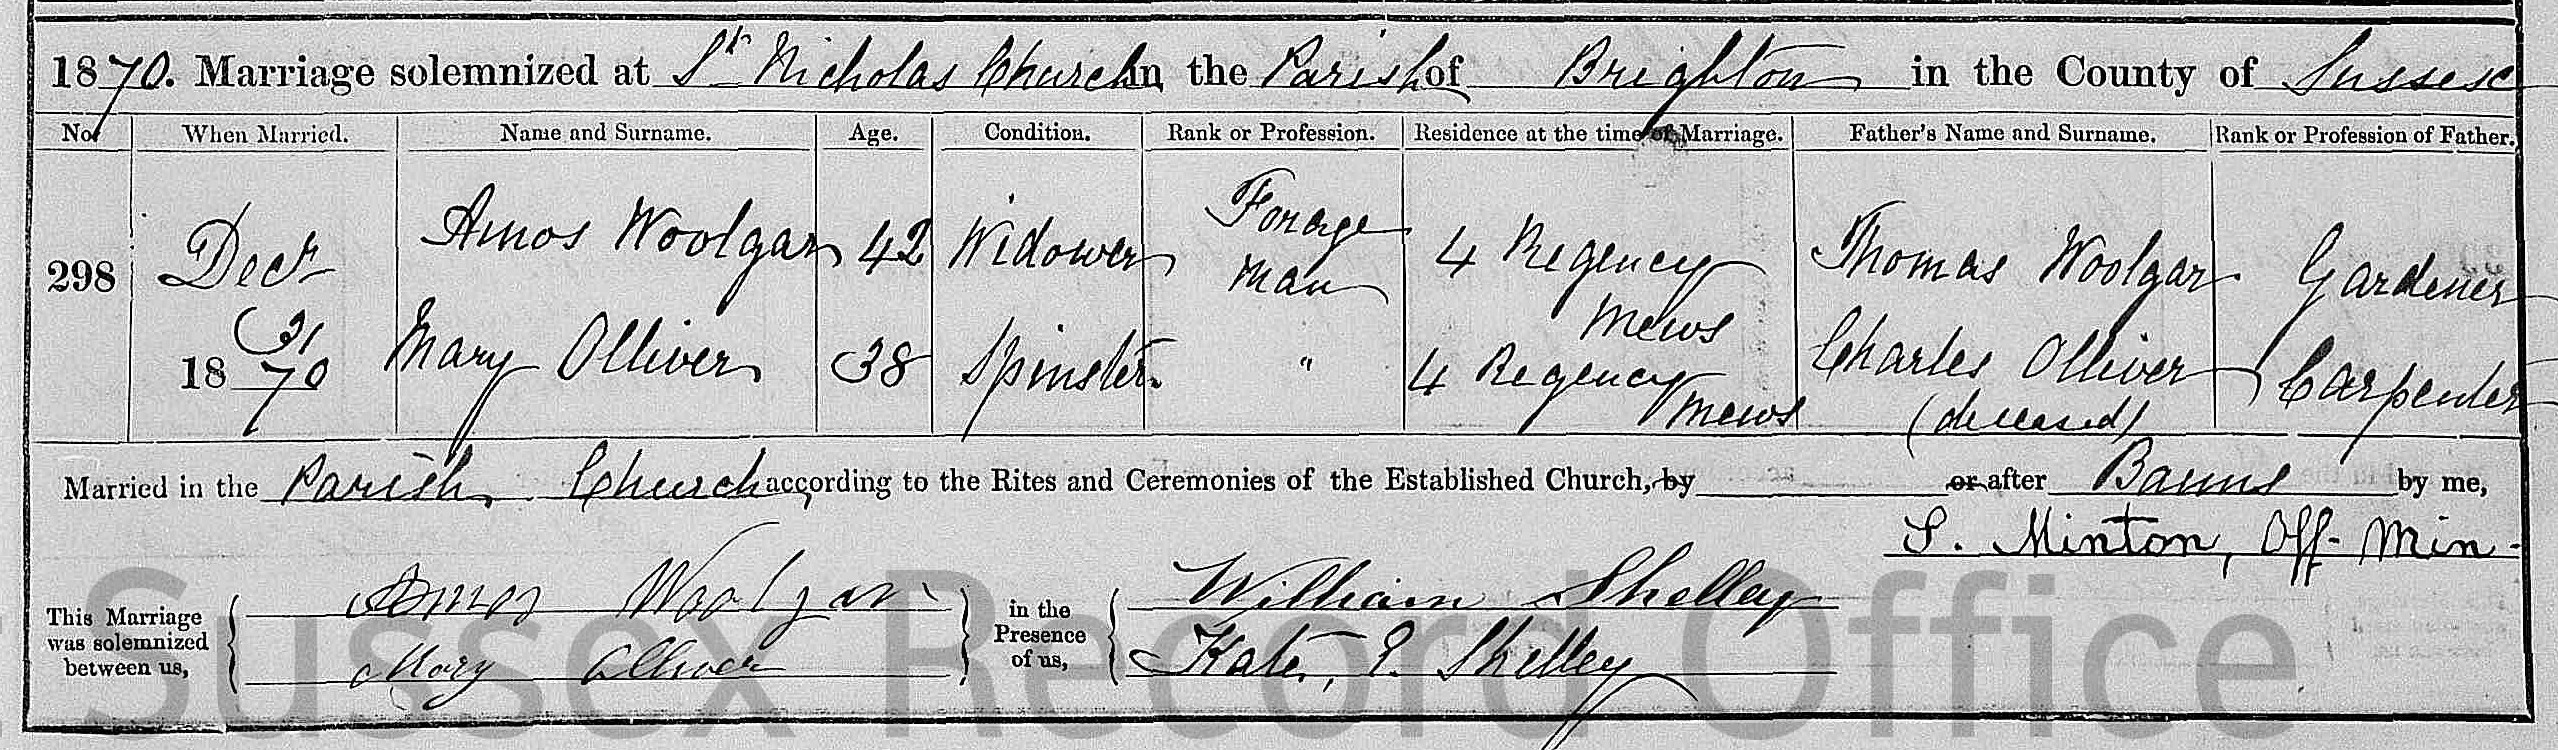 1870. Marriage solemnized at St Nicholas Church in the Parish of Brighton in the County of Sussex
No. When Married. Name and Surname. Age. Condition. Rank or Profession. Residence at the time of Marriage. Father's Name and Surname. Rank or Profession of Father.
298 Decr 31 1870 Amos Woolgar 42 Widower Forage Man 4 Regency Mews Thomas Woolgar Gardener
Mary Olliver 38 Spinster " 4 Regency Mews Charles Olliver (deceased) Carpenter
Married in the Parish Church according to the Rites and Ceremonies of the Established Church, by or after Banns by me,
S. Minton, Off. Min.
This Marriage was solemnized between us, Amos Woolgar Mary Olliver in the Presence of us, William Shelley Kate, E. Shelley
Sussex Record Office